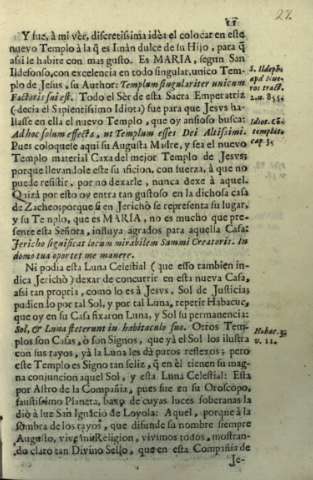 27.
Y fue, à mi vèr, discretissima idèa el colocar en este
nuevo Templo à la q̃ es Iman dulce de su Hijo, para q̃
assi le habite con mas gusto. Es MARIA, segun San
Ildefonso, con excelencia en todo singular, unico Tem-
plo de Jesus, su Author: Templum singulariter unicum
Factoris sui est. Todo el Sèr de esta Sacra Emperatriz
(decia el Sapientissimo Idiota) fue para que Jesvs ha-
llasse en ella el nuevo Templo, que oy ansioso busca:
Ad hoc solum effecta, ut Templum esses Dei Altissimi.
Pues coloquele aqui su Augusta Madre, y sea el nuevo
Templo material Caxa del mejor Templo de Jesvs;
porque llevandole este su aficion, con fuerza, à que no
puede resistir, por no dexarle, nunca dexe à aquel.
Quizà por esto oy entra tan gustoso en la dichosa casa
de Zacheo; porque si en Jerichò se representa su lugar,
y su Templo, que es MARIA, no es mucho que pre-
sente esta Señora, influya agrados para aquella Casa:
Jericho significat locum mirabilem Summi Creatoris. In
domo tua oportet me manere.
Ni podia esta Luna Celestial (que esso tambien in-
dica Jerichò) dexar de concurrir en esta nueva Casa,
assi tan propria, como lo es à Jesvs, Sol de Justicia
pudien lo por tal Sol, y por tal Luna, repetir Habacuc,
que oy en su Casa fixaron Luna, y Sol su permanencia:
Sol, & Luna steterunt in habitaculo suo. Otros Tem-
plos son Casas, ò son Signos, que yà el Sol los ilustra
con sus rayos, yà la Luna les dà puros reflexos; pero
este Templo es Signo tan feliz, q̃ en èl tienen su mag-
na conjuncion aquel Sol, y esta Luna Celestial: Esta
por Astro de la Compañia, pues fue en su Oroscopo,
faustissimo Planeta, baxo de cuyas luces soberanas la
diò à luz San Ignacio de Loyola: Aquel, porque à la
sombra de los rayos, que difunde su nombre siempre
Augusto, vive mi Religion, vivimos todos, mostran-
do claro tan Divino Sello, que en esta Compañia de
Je-
S. Ildeph.
Idiot. Cõ
templat.
cap 3.
Habac. 3.
v. 11.